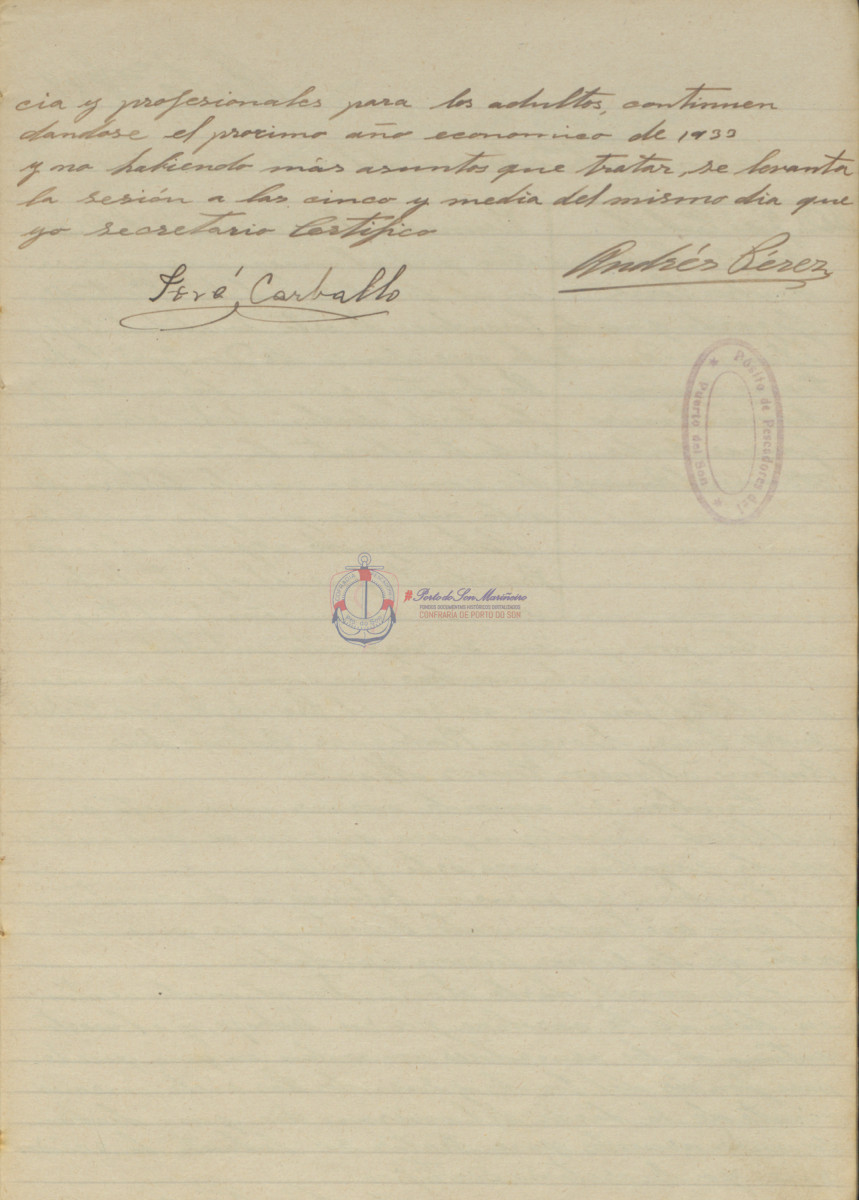 cia y profesionales para los adultos, continuen
dandose el proximo año economico de 1933
y no habiendo más asuntos que tratar, se levanta
la sesión a las cinco y media del mismo dia que
yo secretario Certifico
Andrés Pérez
José Carballo
Pósito de Pescadores del
Puerto del Son
#Porto do Son Mariñeiro
FONDOS DOCUMENTAIS HISTÓRICOS DIXITALIZADOS
CONFRARÍA DE PORTO DO SON